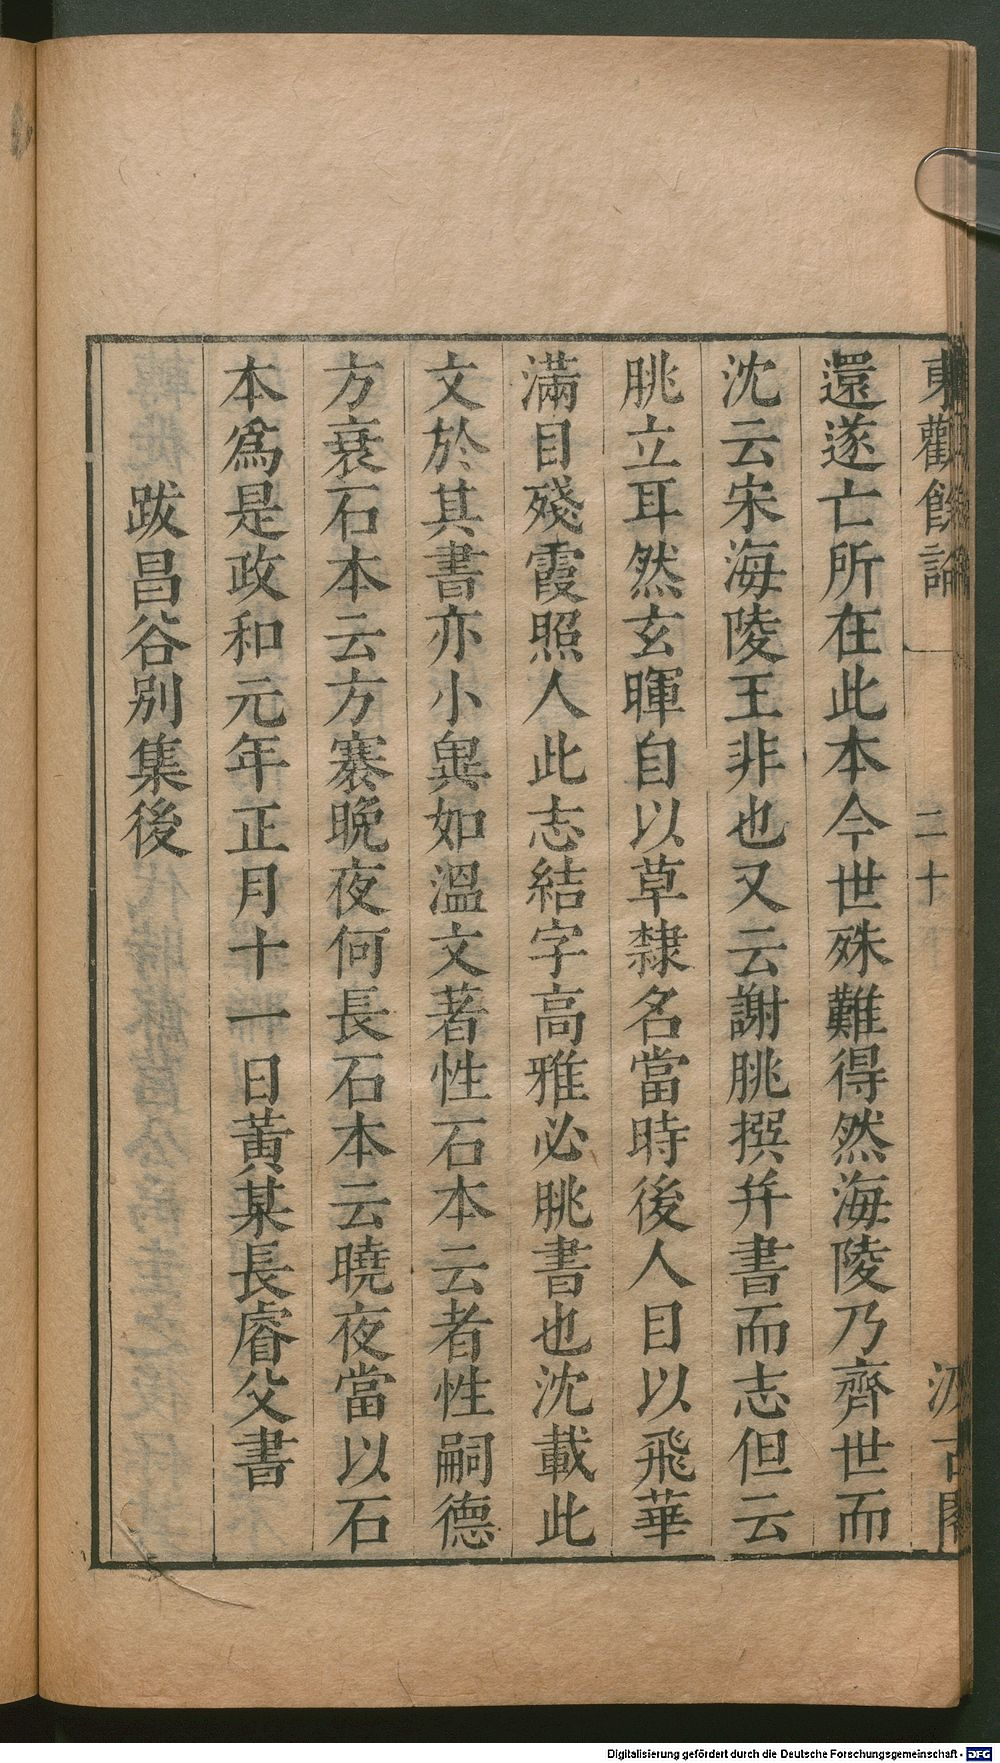 東觀餘論
二十
汲古閣
還遂亡所在此本今世殊難得然海陵乃齊世而
沈云宋海陵王非也又云謝朓撰并書而志但云
朓立耳然玄暉自以草隸名當時後人目以飛華
滿目殘霞照人此志結字高雅必朓書也沈載此
文於其書亦小異如溫文著性石本云者性嗣德
方衰石本云方褰晚夜何長石本云曉夜當以石
本為是政和元年正月十一日黃某長睿父書
跋昌谷別集後
Digitalisierung gefördert durch die Deutsche Forschungsgemeinschaft - DFG